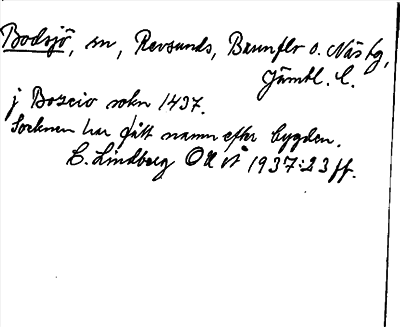 Bodsjö, sn, Revsunds, Brunflo o. Näs tg,
Jämtl. l.
j Boscio sokn 1437.
Socknen har fått namn efter bygden.
C. Lindberg 1937:23 ff.